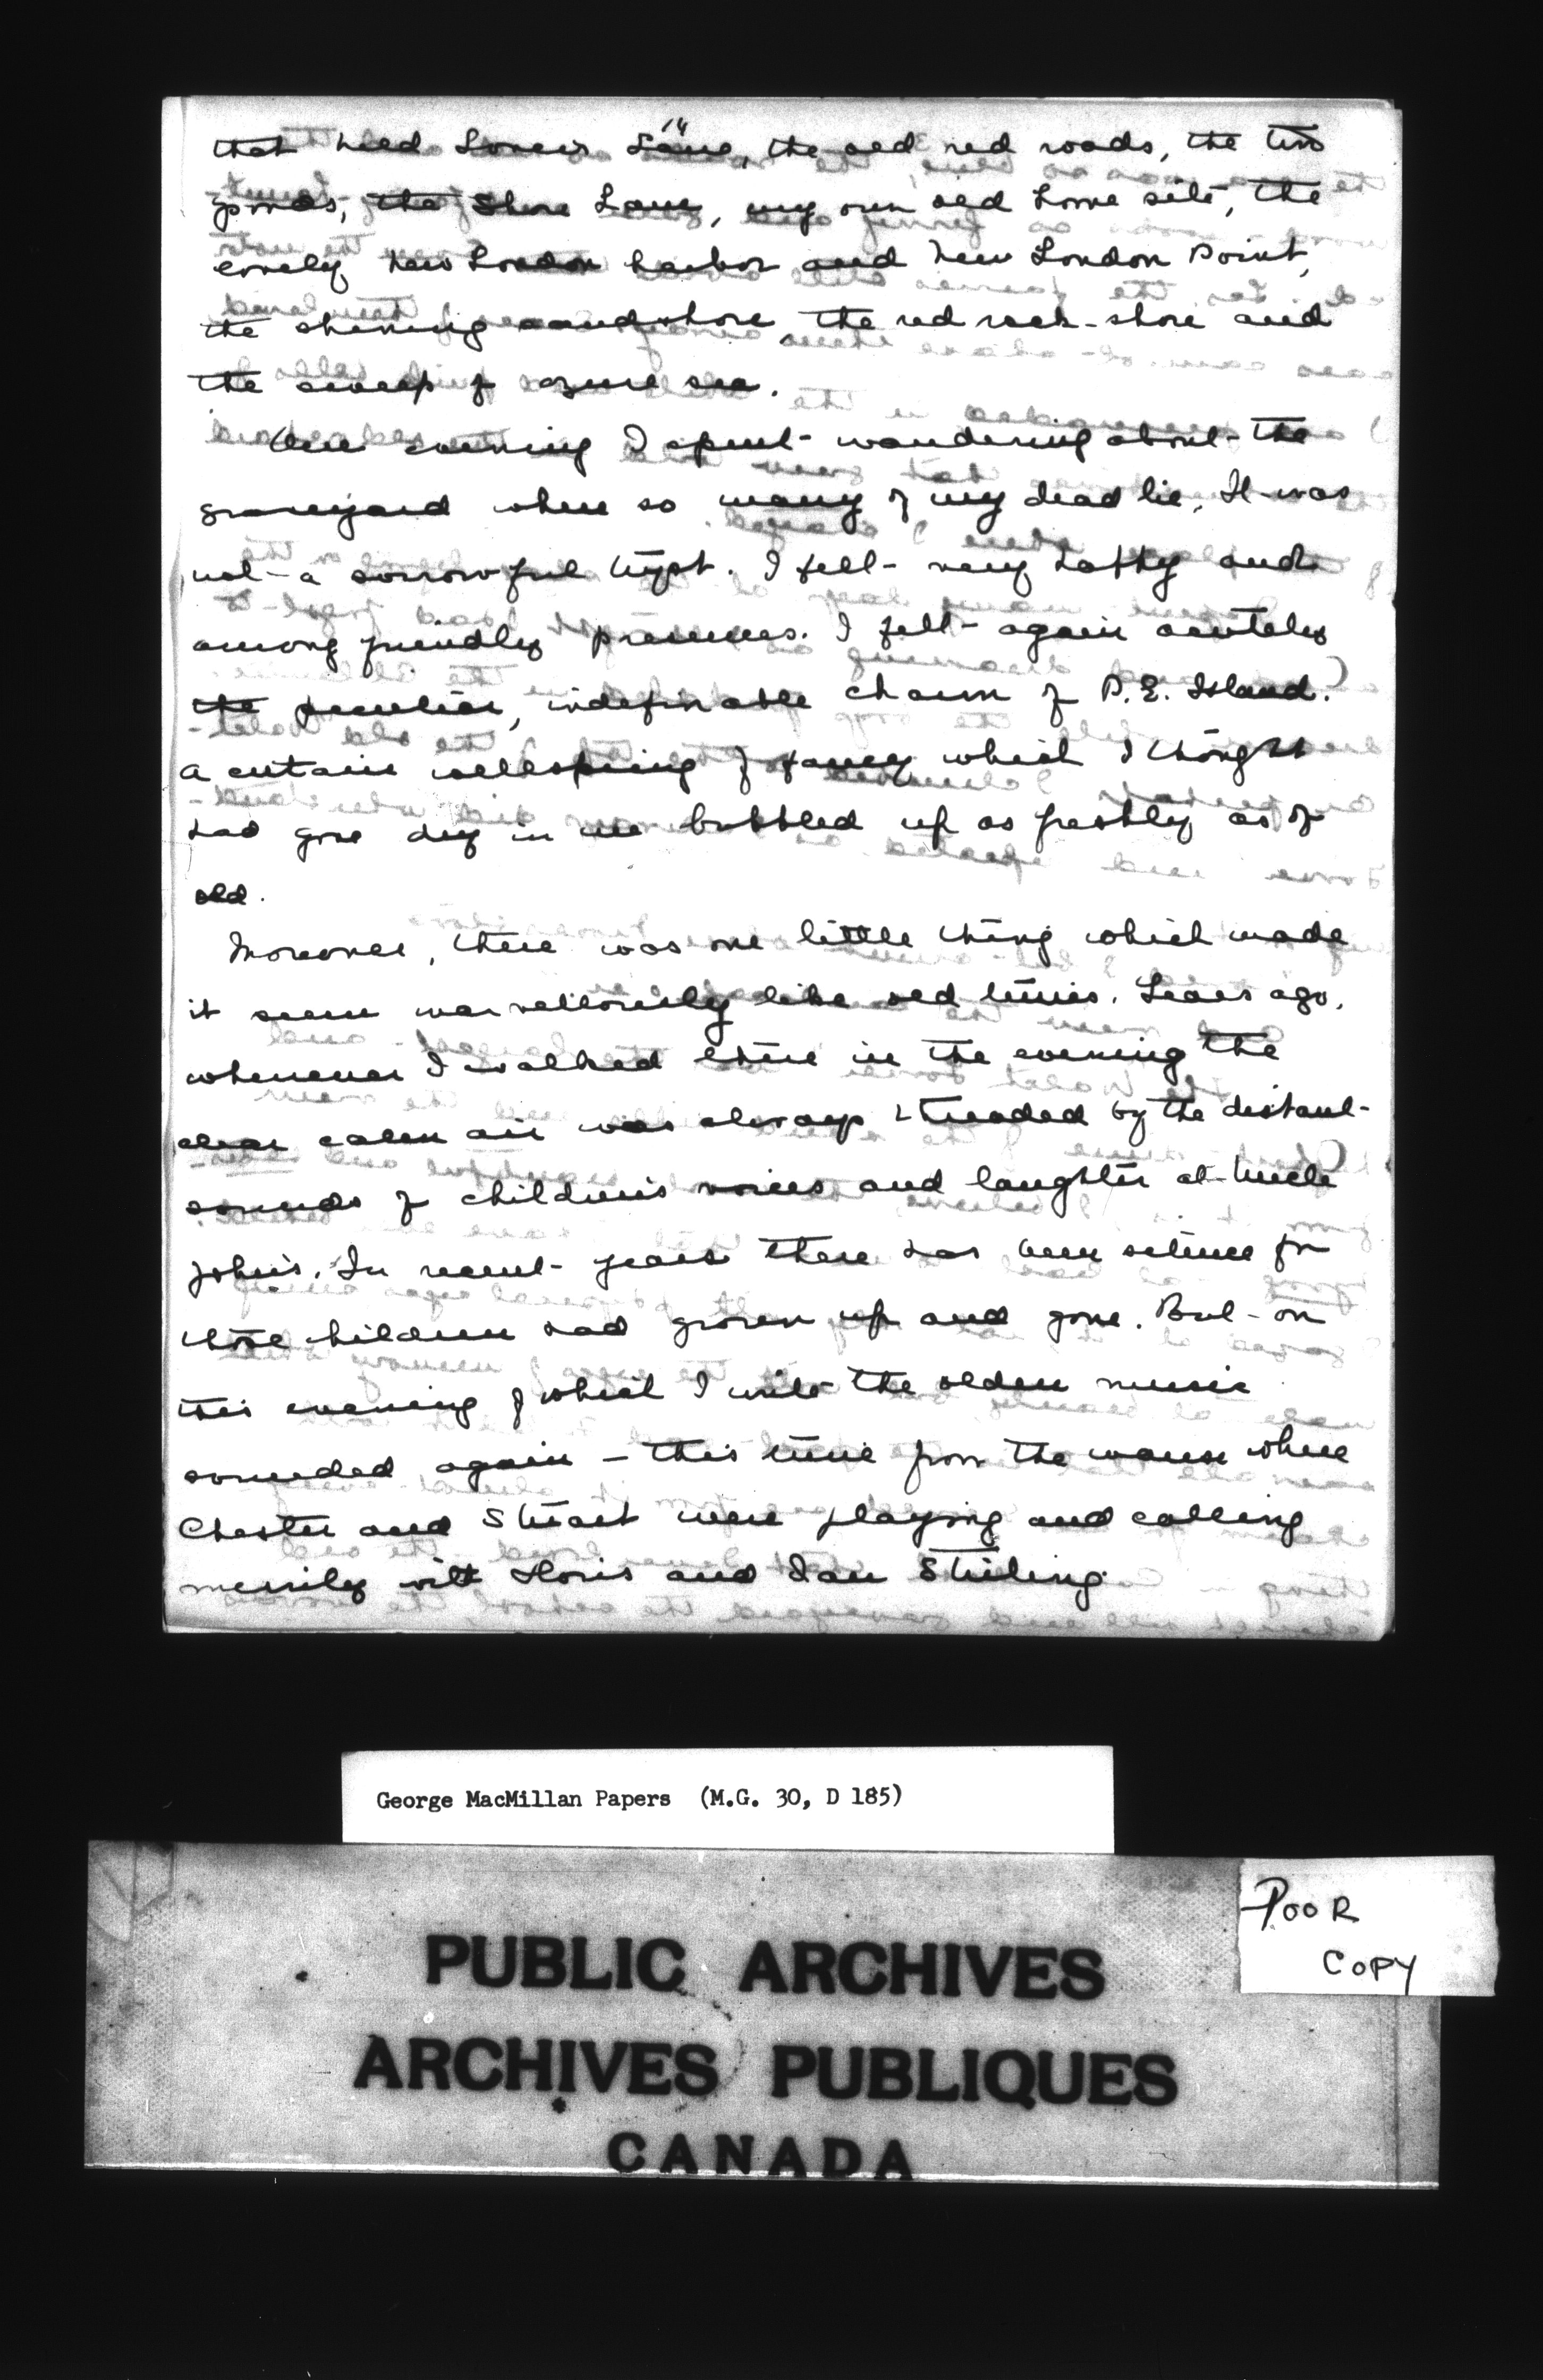 14
that held Lover's Lane, the old red roads, the two
ponds, the Shore Lane, my own old home site, the
lovely New London harbor and New London Point,
the shining sandshore, the red rock-shore and
the sweep of azure sea.
One evening I spent wandering about the
graveyard where so many of my dead lie. It was
not a sorrowful tryst. I felt very happy and
among friendly presences. I felt again acutely
the peculiar, indefinable charm of P.E. Island.
A certain wellspring of fancy which I thought
had gone dry in me bubbled up as freshly as of
old.
Moreover, there was one little thing which made
it seem marvellously like old times. Years ago,
whenever I walked there in the evening the
clear calm air was always threaded by the distant
sounds of children's voices and laughter at Uncle
John's. In recent years there has been silence for
those children had grown up and gone. But on
this evening of which I write the olden music
sounded again – this time from the manse where
Chester and Stuart were playing and calling
merrily with Doris and Ian Stirling.
George MacMillan Papers (M.G. 30, D 185)
POOR
COPY
PUBLIC ARCHIVES
ARCHIVES PUBLIQUES
CANADA